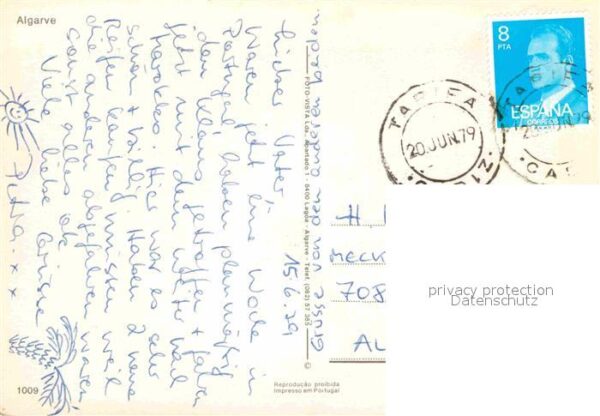 Algarve
15.6.79
Lieber Vater!
Waren jetzt eine Woche in
Portugal, haben planmäßig
den Klaus getroffen + fahren
jetzt mit dem weiter nach
Marokko. Hier war es sehr
schön + billig. Haben 2 neue
Reifen kaufen müssen weil
die anderen abgefahren waren
sonst alles ok.
Viele liebe Grüße
Petra x x
Grüsse von den anderen beiden.
FOTO VISTA Lda. Apartado 1 · 8400 Lagoa · Algarve · Telef. (082) 57 365
©
8
PTA
ESPAÑA
CORREOS
TARIFA
20.JUN.79
CADIZ
H
Meck
708
AL
privacy protection
Datenschutz
1009
Reprodução proibida
Impresso em Portugal